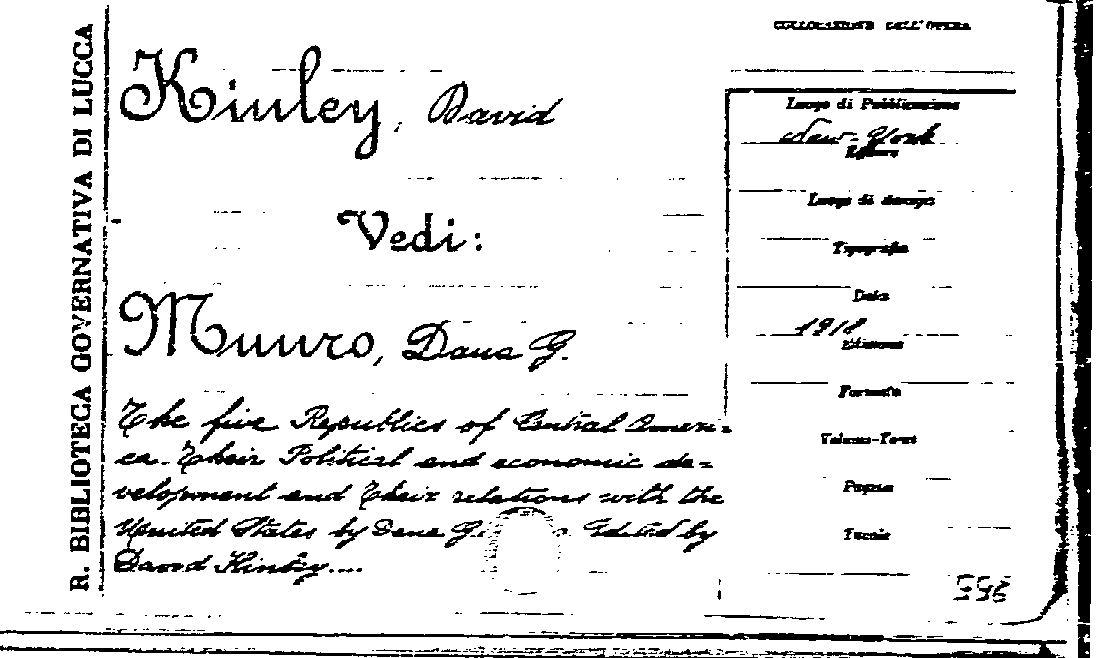 R. BIBLIOTECA GOVERNATIVA DI LUCCA
Kinley, David
Vedi:
Munro, Dana G.
The five Republics of Central Ameri=
ca. Their Political and economic de=
velopment and their relations with the
United States by Dana G. Edited by
David Kinley....
COLLOCAZIONE DELL'OPERA
Luogo di Pubblicazione
New-York
Editore
Luogo di stampa
Tipografia
Data
1918
Edizione
Formato
Volume-Tomo
Pagine
Tavole